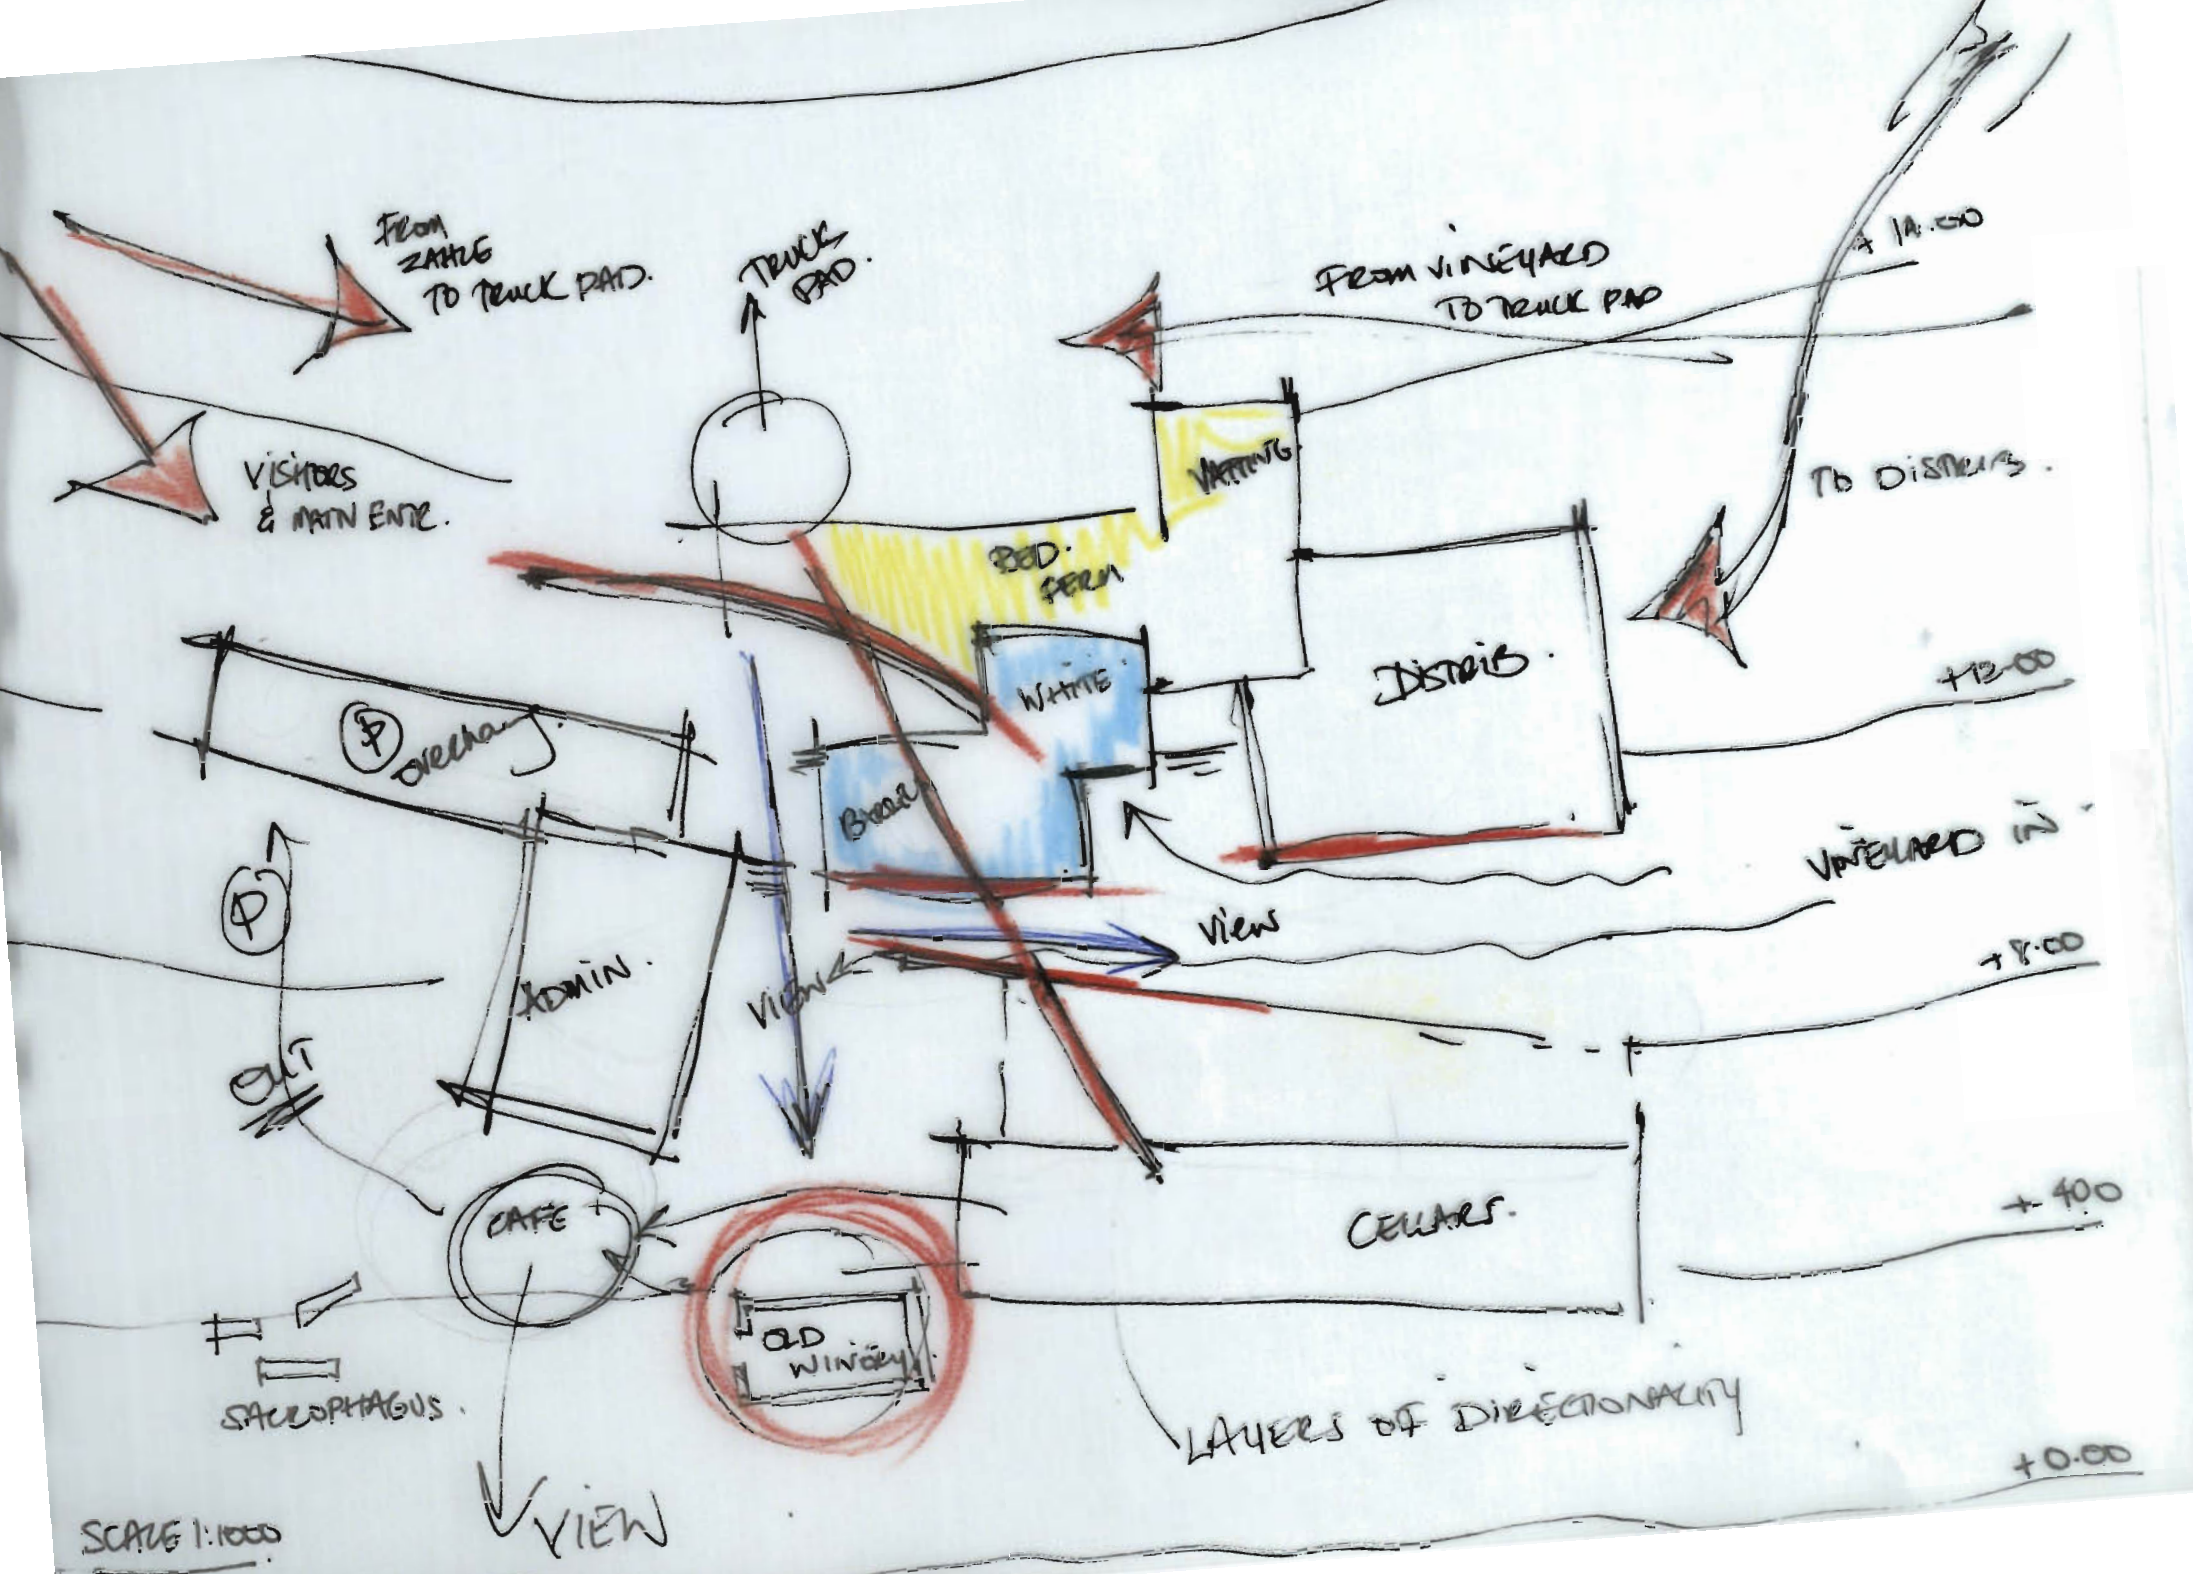 FROM
ZAHLE
TO TRUCK PAD.
TRUCK
PAD.
FROM VINEYARD
TO TRUCK PAD
+ 14.00
VISITORS
& MAIN ENTR.
VATTING.
TO DISTRIB.
FERM
WHITE
DISTRIB.
+12.00
P
overhang.
BARREL
VINEYARD IN
P
View
+8.00
ADMIN.
VIEW
OUT
CAFE
CELLARS.
+ 400
OLD
WINERY.
SACROPHAGUS.
LAYERS OF DIRECTIONALITY
+0.00
VIEW
SCALE 1:1000